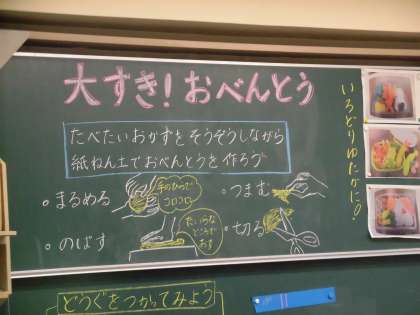 大すき！おべんとう
いろどりゆたかに！
たべたいおかずをそうぞうしながら
紙ねん土でおべんとうを作ろう
・まるめる
手のひらで
コロコロ
・つまむ
・のばす
たいらな
ところで
おす
・切る
どうぐをつかってみよう